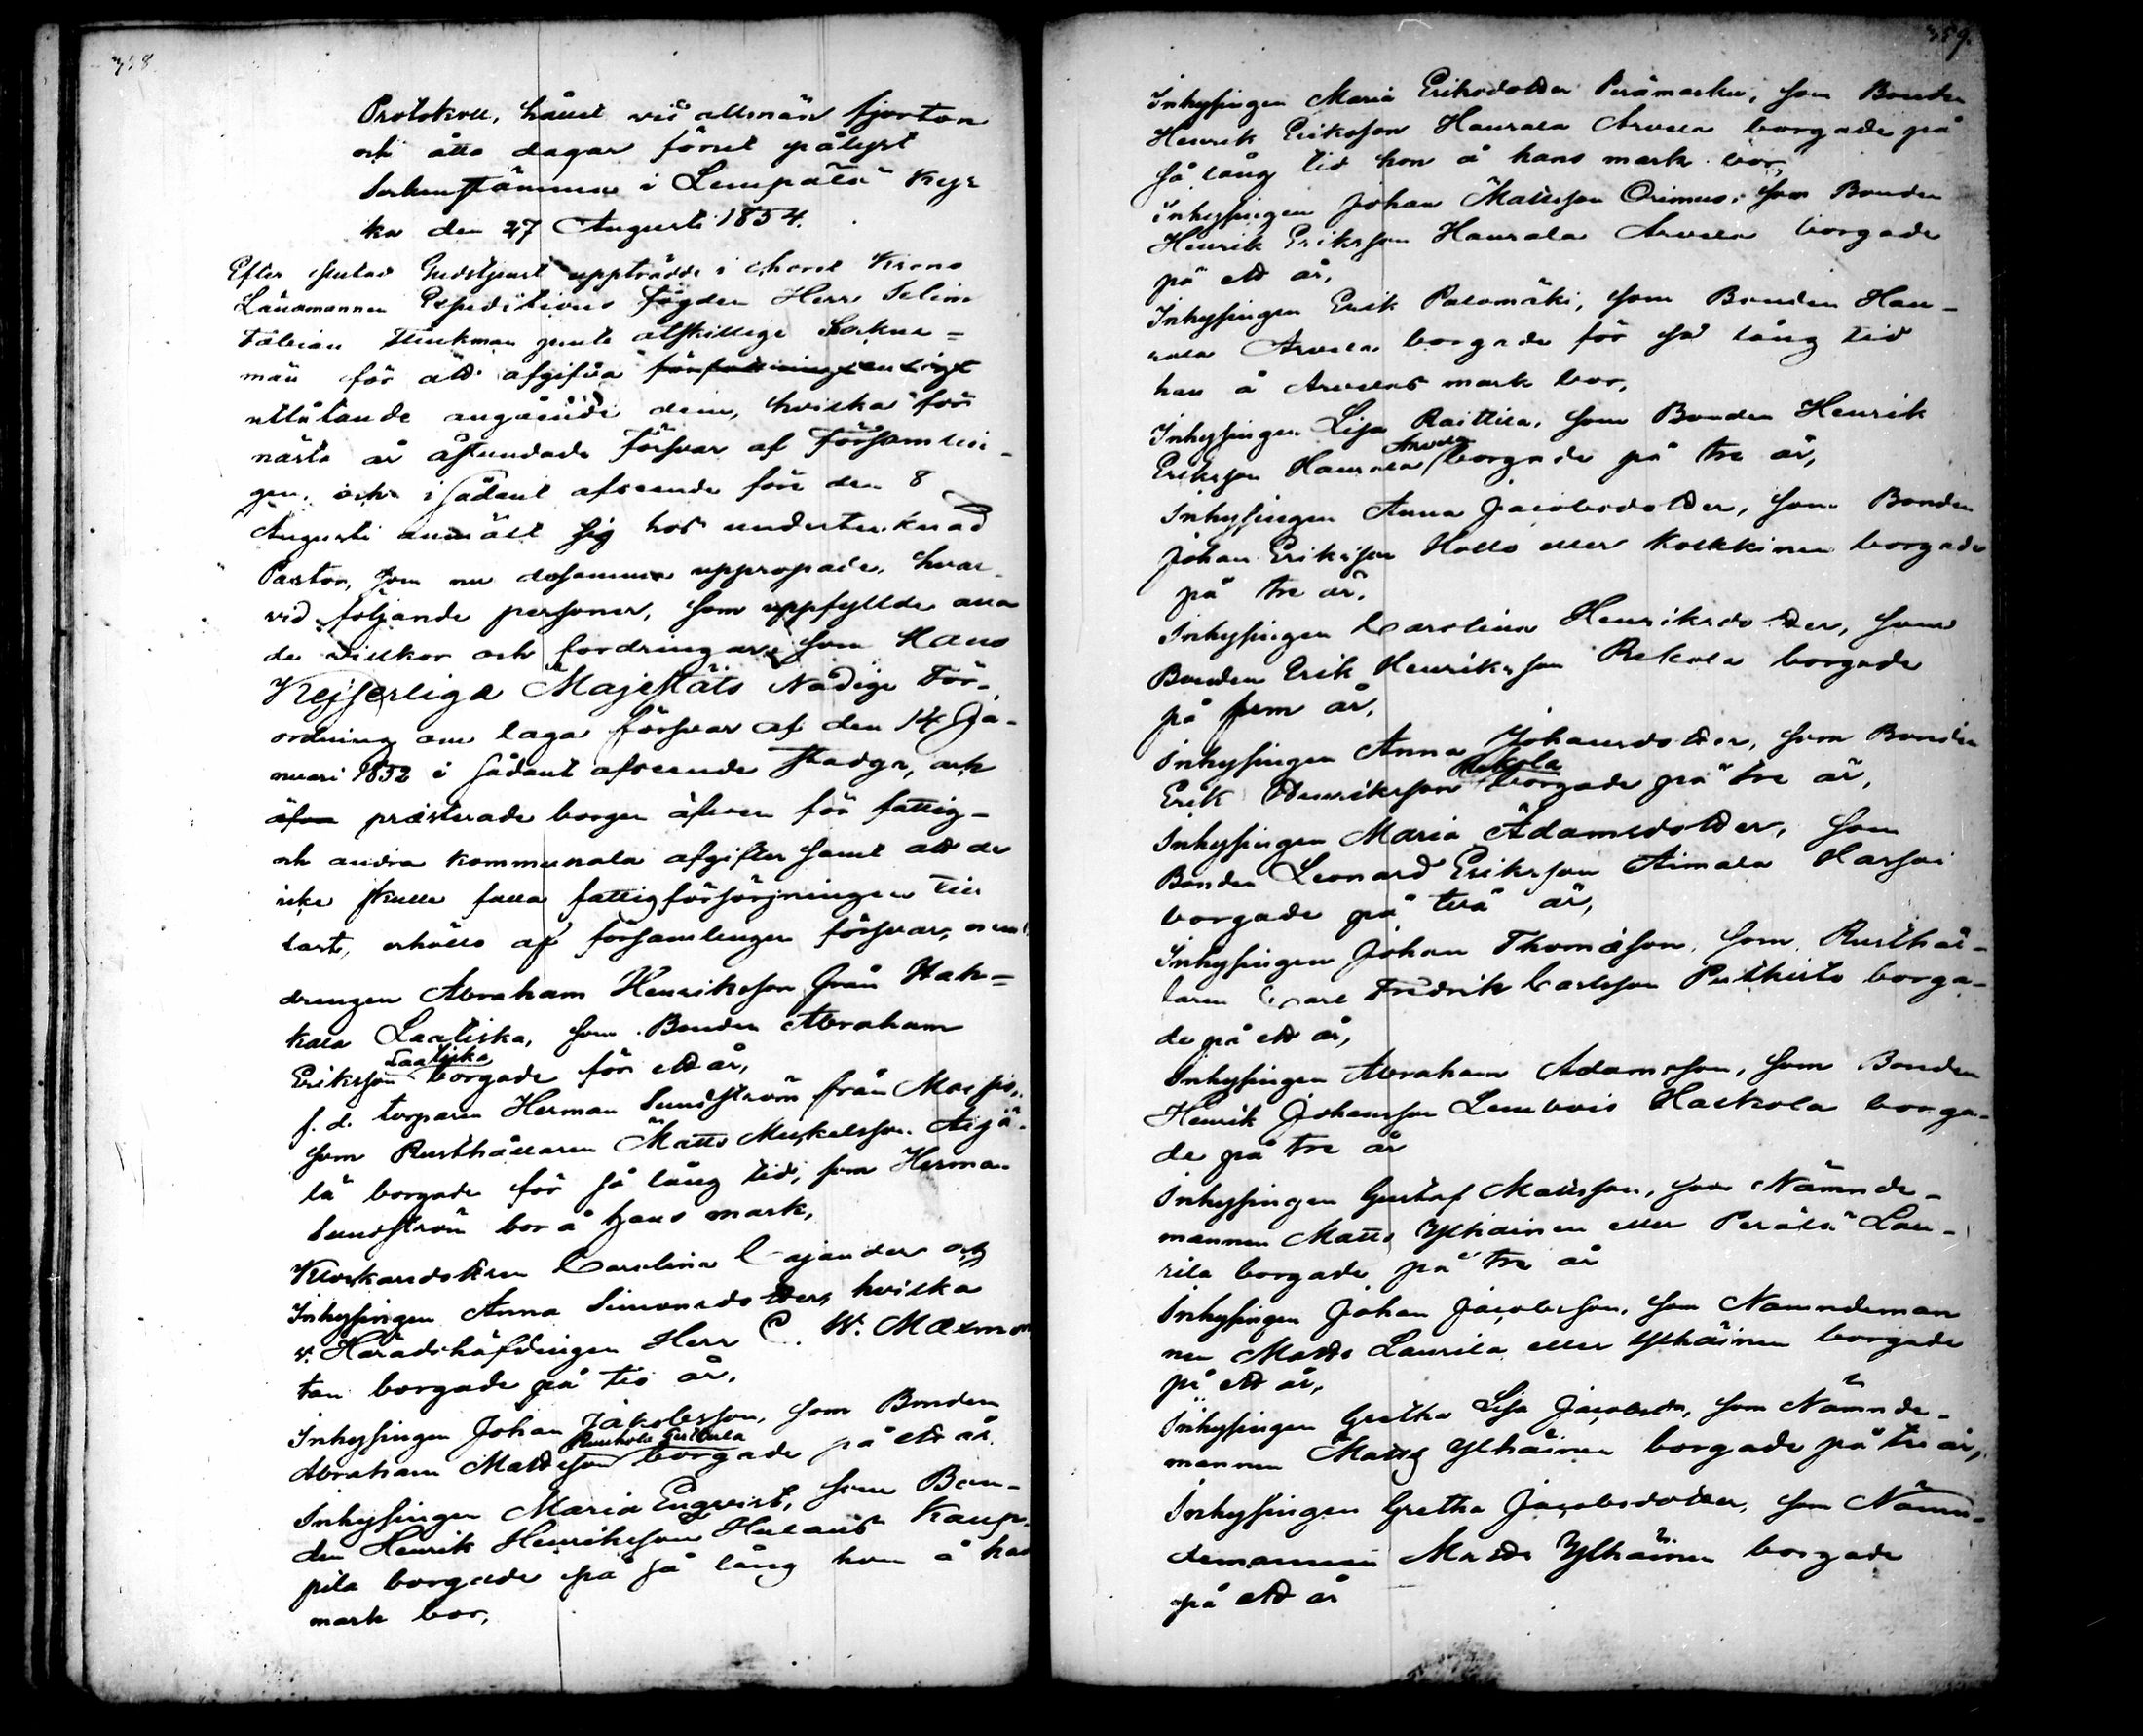 358
Protokoll, hållet vid allmän fjorton
och åtta dagar förut pålyst
Sockenstämma i Lempäälä Kyr
ka den 27 Augusti 1854.
Efter slutad Gudstjenst uppträdde i choret Krono
Länsmannen Expeditions fogden Herr Selim
Fabian Flinkman jemte åtskillige Sockne=
män för att afgifva författningsenligt
utlåtande angående dem, hvilka för
nästa år åstundade försvar af församlin-
gen, och i sådant afseende före den 8
Augusti anmält sig hos undertecknad
Pastor, som nu desamma uppropade, hvar-
vid följande personer, som uppfyllde alla
de villkor och fordringar, som Hans
Kejserliga Majestäts Nådiga För-
ordning om laga försvar af den 14 Ja-
nuari 1852 i sådant afseende stadga, och
äfven presterade borgen äfven för fattig-
och andra kommunala afgifter samt att de
icke skulle falla fattigförsörjningen till
last, erhöllo af församlingen försvar, neml.
drengen Abraham Henriksson från Hak=
kala Laatiska, som Bonden Abraham
Eriksson Laatiska borgade för ett år,
f. d. torparen Herman Sundström från Moisio,
som Rusthållaren Matts Mickelsson Äijä-
lä borgade för så lång tid, som Herman
Sundström bor å hans mark,
Klockaredottren Carolina Cajander och
Inhysingen Anna Simonsdotter, hvilka
v. Häradshöfdingen Herr C. W. Maxmon
tan borgade på tio år.
Inhysingen Johan Jakobsson, som Bonden
Abraham Mattsson borgade på ett år.
Inhysingen Maria Enqvist, som Bon-
den Henrik Henriksson Kaup-
pila borgade på så lång hon å hans
mark bor,
359.
Inhysingen Maria Eriksdotter Perämaku, som Bonden
Henrik Eriksson Haurala Arvela borgade på
så lång tid hon å hans mark bor,
Inhysingen Johan Mattsson Orimus, som Bonden
Henrik Eriksson Haurala Arvela borgade
på ett år,
Inhysingen Erik Palomäki, som Bonden Hau-
rala Arvela borgade för så lång tid
han å Arvelas mark bor,
Inhysingen Lisa Raittila, som Bonden Henrik
Eriksson Haurala Arvela borgade på tre år,
Inhysingen Anna Jacobsdotter, som Bonden
Johan Eriksson Hollo eller Kolkkinen borgade
på tre år.
Inhysingen Carolina Henriksdotter, som
Bonden Erik Henriksson Rekola borgade
på fem år,
Inhysingen Anna Johansdotter, som Bonden
Erik Henriksson Rekola borgade på tre år,
Inhysingen Maria Adamsdotter, som
Bonden Leonard Eriksson Aimala
borgade på två år,
Inhysingen Johan Thomasson, som Rusthål-
laren Carl Fredrik Carlsson borga-
de på ett år,
Inhysingen Abraham Adamsson, som Bonden
Henrik Johansson Lembois borga-
de på tre år
Inhysingen Gustaf Mattsson, som Nämnde-
mannen Matts Ylhäinen eller Perälä Lau-
rila borgade på tre år
Inhysingen Johan Jacobsson, som Nämndeman
nen Matts Laurila eller Ylhäinen borgade
på ett år,
Inhysingen Gretha Lisa Jacobsdr, som Nämnde-
mannen Matts Ylhäinen borgade på tre år,
Inhysingen Gretha Jacobsdotter, som Nämn-
demannen Matts Ylhäinen borgade
på ett år